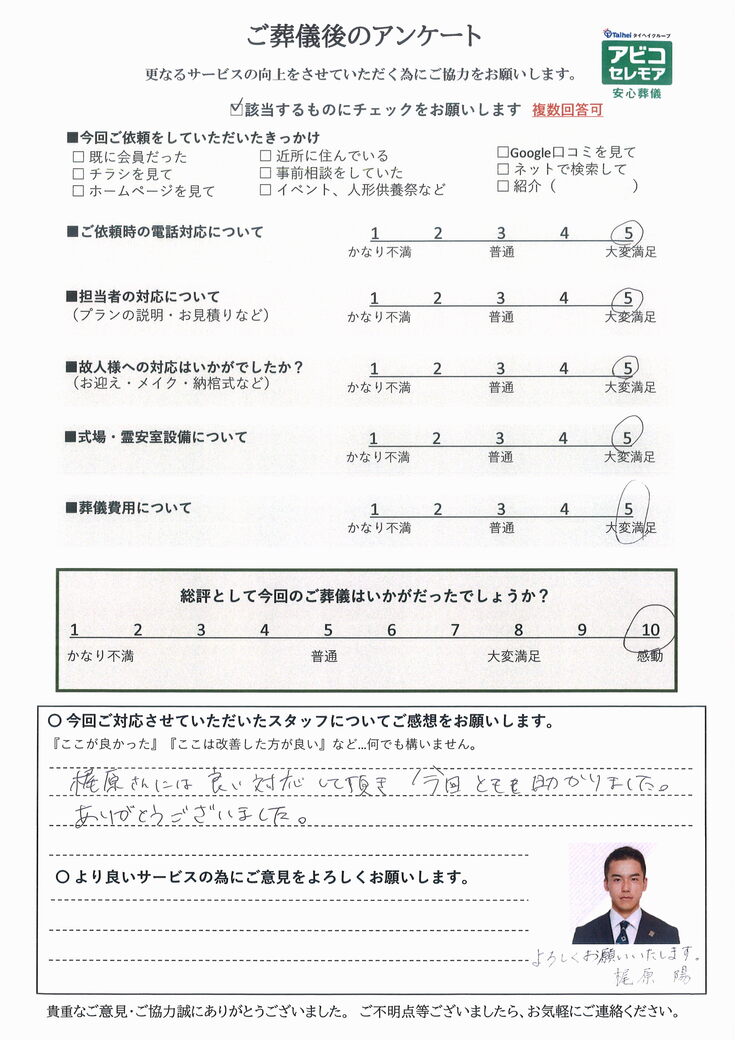 ご葬儀後のアンケート
Taihei タイヘイグループ
アビコ
セレモア
安心葬儀
更なるサービスの向上をさせていただく為にご協力をお願いします。
☑該当するものにチェックをお願いします 複数回答可
■今回ご依頼をしていただいたきっかけ
□ 既に会員だった □ 近所に住んでいる □Google口コミを見て
□ チラシを見て □ 事前相談をしていた □ ネットで検索して
□ ホームページを見て □ イベント、人形供養祭など □ 紹介（ ）
■ご依頼時の電話対応について 1 2 3 4 5
かなり不満 普通 大変満足
■担当者の対応について 1 2 3 4 5
（プランの説明・お見積りなど） かなり不満 普通 大変満足
■故人様への対応はいかがでしたか？ 1 2 3 4 5
（お迎え・メイク・納棺式など） かなり不満 普通 大変満足
■式場・霊安室設備について 1 2 3 4 5
かなり不満 普通 大変満足
■葬儀費用について 1 2 3 4 5
かなり不満 普通 大変満足
総評として今回のご葬儀はいかがだったでしょうか？
1 2 3 4 5 6 7 8 9 10
かなり不満 普通 大変満足 感動
〇 今回ご対応させていただいたスタッフについてご感想をお願いします。
『ここが良かった』『ここは改善した方が良い』など…何でも構いません。
梶原さんには 良い対応して頂き 今回 とても助かりました。
ありがとうございました。
〇 より良いサービスの為にご意見をよろしくお願いします。
よろしくお願いいたします。
梶原 陽
貴重なご意見・ご協力誠にありがとうございました。 ご不明点等ございましたら、お気軽にご連絡ください。